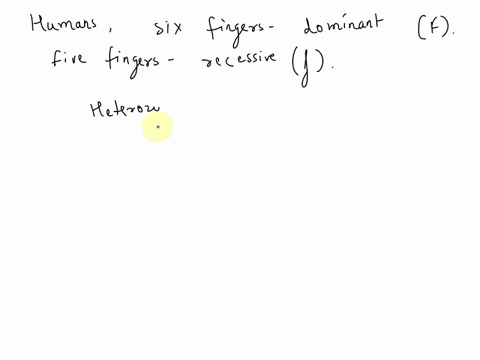 Humans, six fingers - dominant (F).
five fingers - recessive (f).
Heteroz